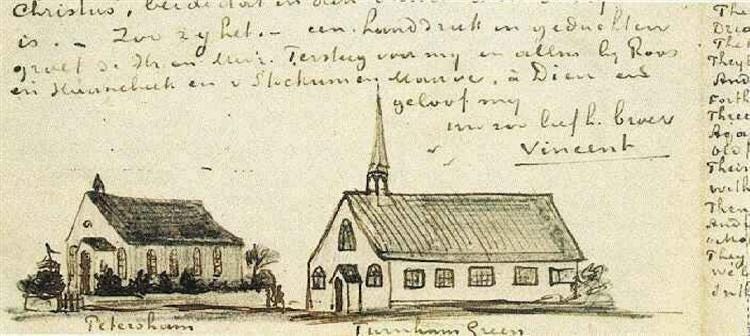 Christus, beide dat en
is. – Zoo zij het. – een handdruk in gedachten
groet de Hr en Mevr. Tersteeg voor mij en allen bij Roos
en Haanebeek en v Stockum en Mauve, à Dieu en
geloof mij
uw zoo liefh. broer
Vincent
Petersham
Turnham Green
The
Drea
The
They
And
Forth
Three
Aga
Old f
Their
With
Then
And
They
We